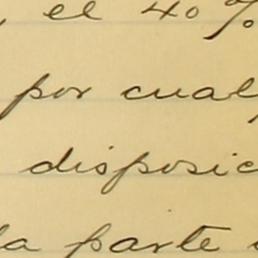 , el 40%
por cual
disposic
la parte